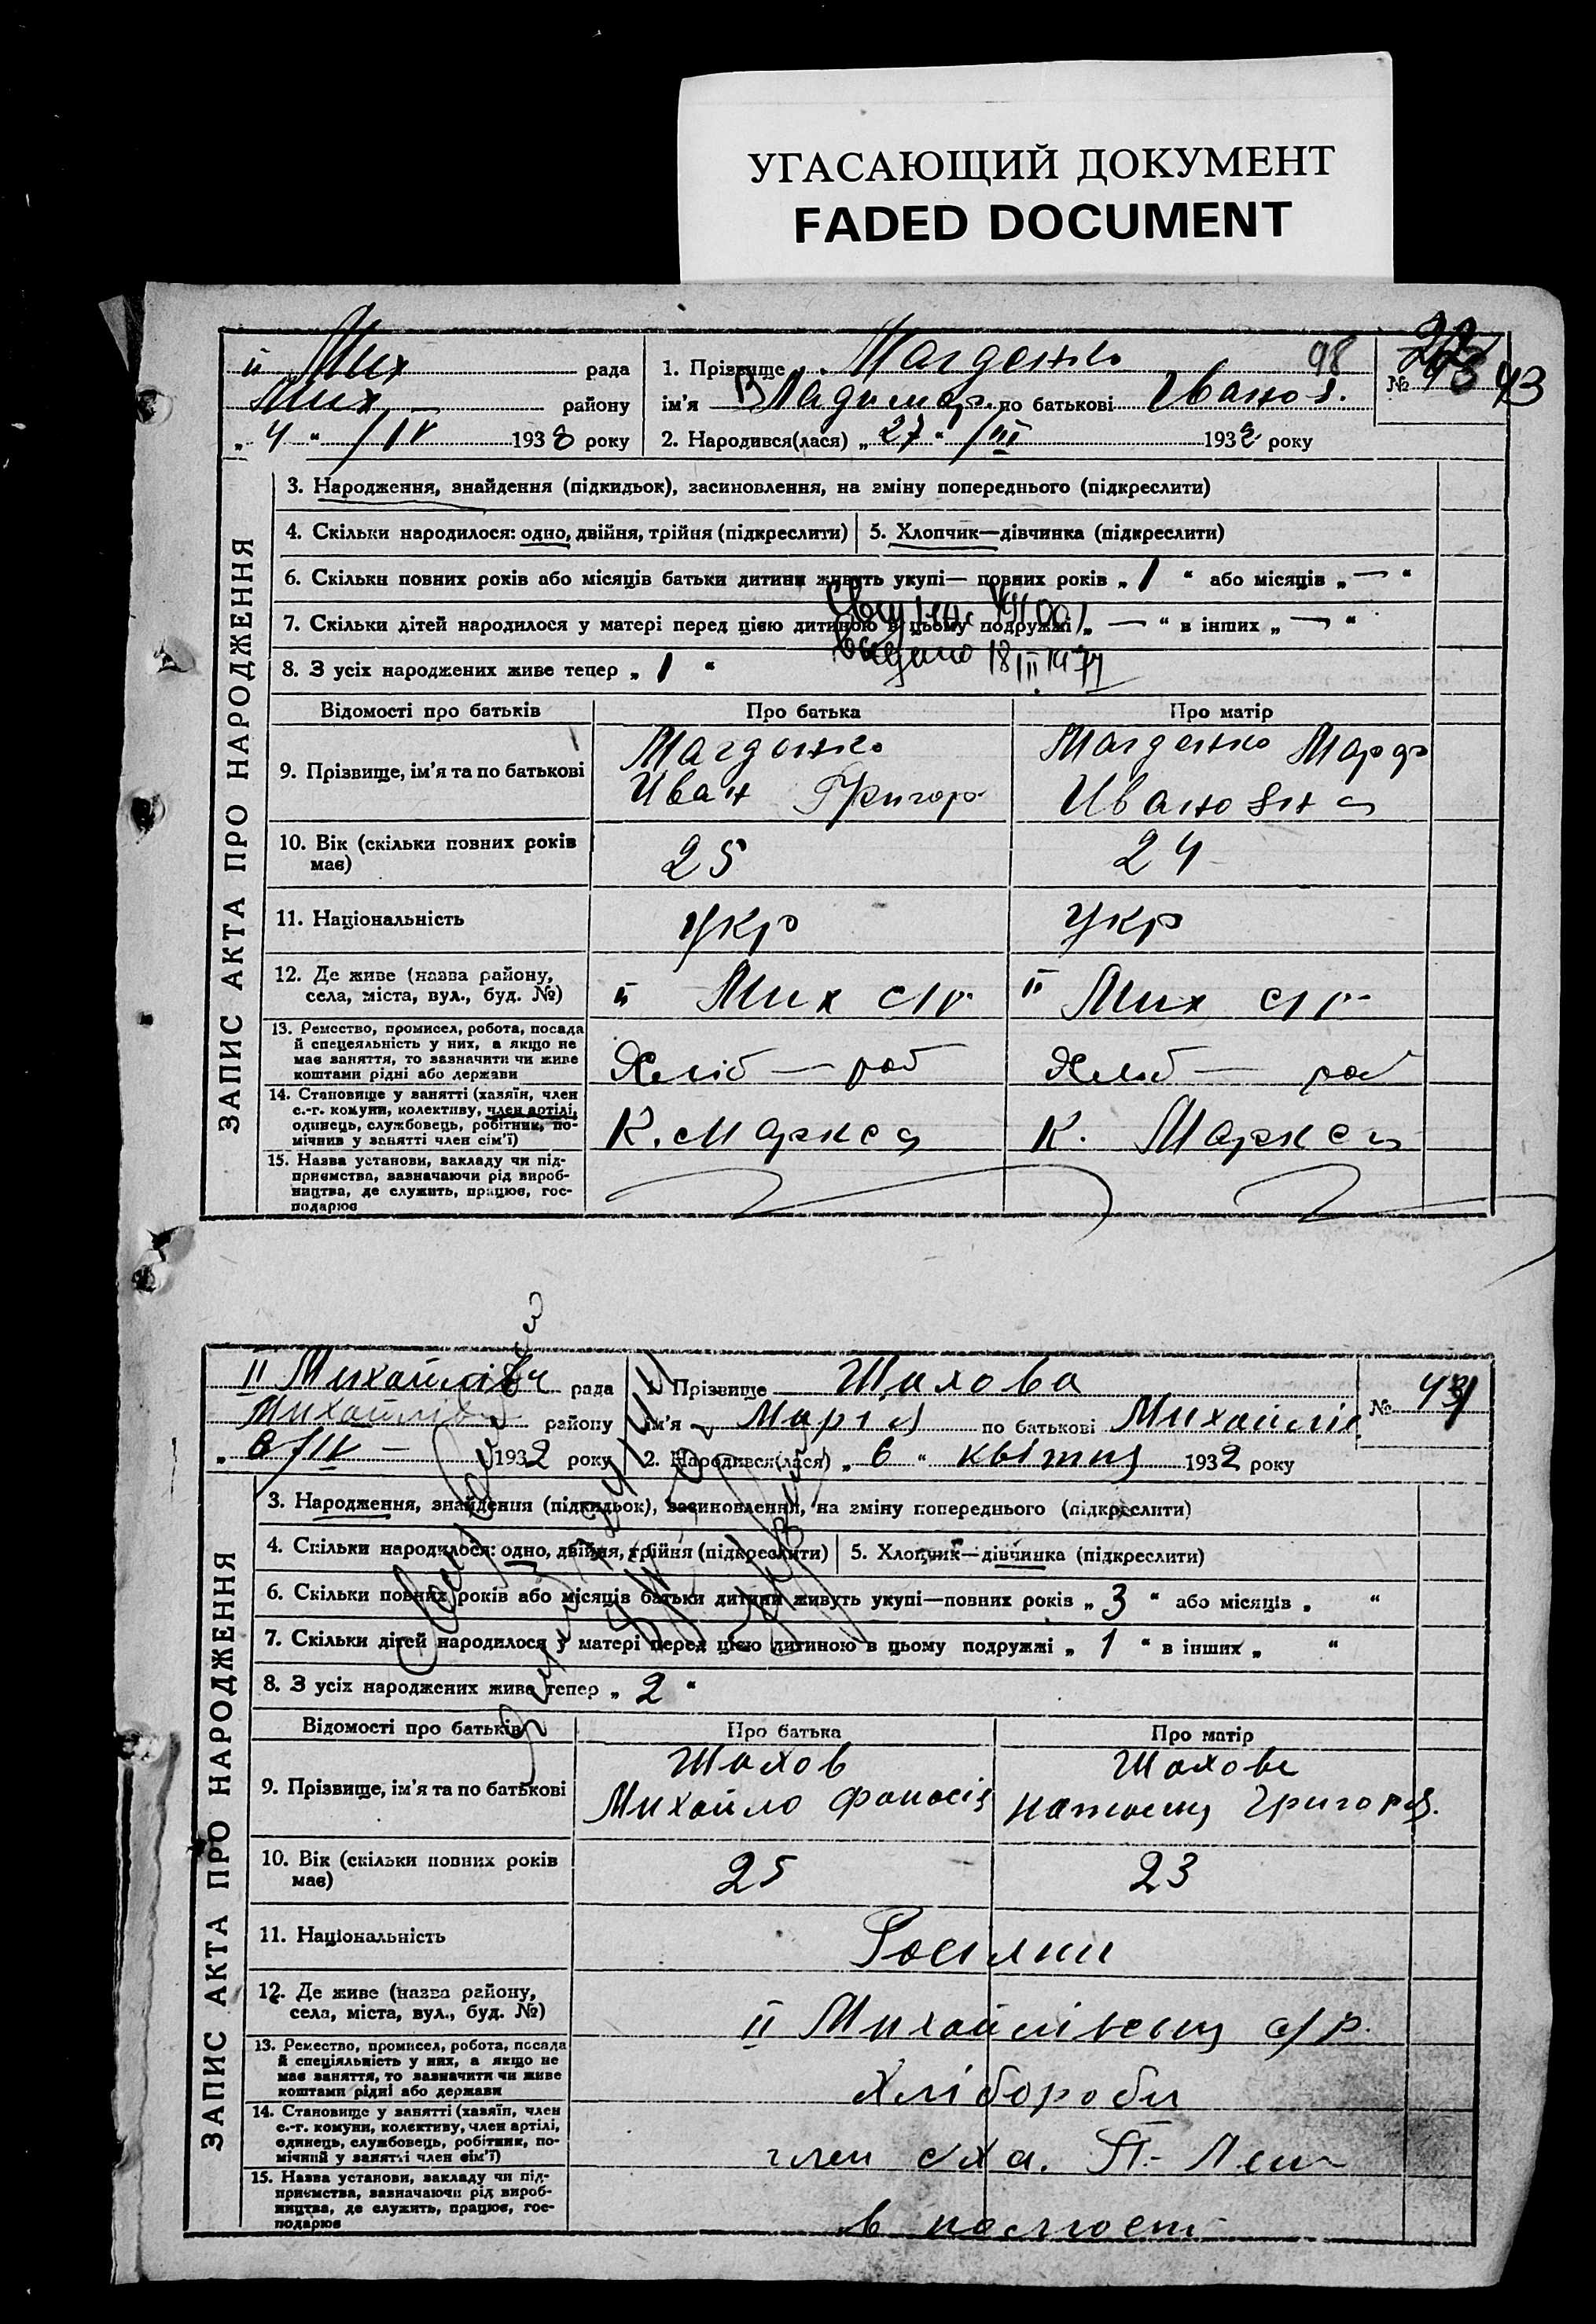 УГАСАЮЩИЙ ДОКУМЕНТ
FADED DOCUMENT
ЗАПИС АКТА ПРО НАРОДЖЕННЯ
ІІ Мих рада
Мих району
„ 4 “ /IV 1938 року
1. Прізвище Магденко 98
ім'я Владимир по батькові Іванов.
2. Народився(лася) „ 27 “ /III 193 року
№ 43
3. Народження, знайдення (підкидьок), засиновлення, на зміну попереднього (підкреслити)
4. Скільки народилося: одно, двійня, трійня (підкреслити)
5. Хлопчик—дівчинка (підкреслити)
6. Скільки повних років або місяців батьки дитини живуть укупі— повних років „ 1 “ або місяців „ — “
7. Скільки дітей народилося у матері перед цією дитиною в цьому подружжі „ — “ в інших „ — “
8. З усіх народжених живе тепер „ 1 “
18 III 1974
Відомості про батьків Про батька Про матір
9. Прізвище, ім'я та по батькові
Магденко Магденко Марф
Иван Григор Ивановна
10. Вік (скільки повних років має) 25 24
11. Національність укр укр
12. Де живе (назва району, села, міста, вул., буд. №) ІІ Мих с/р ІІ Мих с/р
13. Ремество, промисел, робота, посада
й спецеяльність у них, а якщо не
має заняття, то зазначити чи живе
коштами рідні або держави
Хліб — роб Хліб — роб
14. Становище у занятті (хазяїн, член
с.-г. комуни, колективу, член артілі,
одинець, службовець, робітник, по-
мічник у занятті член сім'ї)
К. Маркса К. Маркса
15. Назва установи, закладу чи під-
приємства, зазначаючи рід вироб-
ництва, де служить, працює, гос-
подарює
ЗАПИС АКТА ПРО НАРОДЖЕННЯ
ІІ Михайлівс рада
Михайлівс району
„ 6/IV — 1932 року
1. Прізвище Шахова
ім'я Марія по батькові Михайлів
2. Народився(лася) „ 6 “ квітня 1932 року
№
3. Народження, знайдення (підкидьок), засиновлення, на зміну попереднього (підкреслити)
4. Скільки народилося: одно, двійня, трійня (підкреслити)
5. Хлопчик—дівчинка (підкреслити)
6. Скільки повних років або місяців батьки дитини живуть укупі—повних років „ 3 “ або місяців „ “
7. Скільки дітей народилося у матері перед цією дитиною в цьому подружжі „ 1 “ в інших „ “
8. З усіх народжених живе тепер „ 2 “
Відомості про батьків Про батька Про матір
9. Прізвище, ім'я та по батькові
Шахов Шахова
Михайло Фанасів Григорів.
10. Вік (скільки повних років має) 25 23
11. Національність Росіяни
12. Де живе (назва району, села, міста, вул., буд. №) ІІ Михайлівська с/р.
13. Ремество, промисел, робота, посада
й спеціяльність у них, а якщо не
має заняття, то зазначити чи живе
коштами рідні або держави
Хлібороби
14. Становище у занятті (хазяїн, член
с.-г. комуни, колективу, член артілі,
одинець, службовець, робітник, по-
мічний у занятті член сім'ї)
член с/х а.
15. Назва установи, закладу чи під-
приємства, зазначаючи рід вироб-
ництва, де служить, працює, гос-
подарює